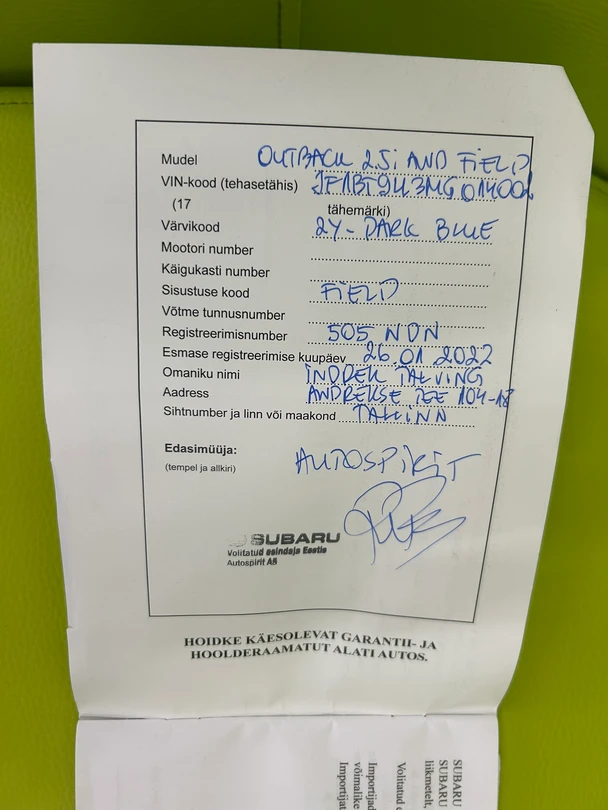 Mudel OUTBACK 2.5i AWD FIELD
VIN-kood (tehasetähis) JF1BT9H3MG014001
(17 tähemärki)
Värvikood 2Y - DARK BLUE
Mootori number
Käigukasti number
Sisustuse kood FIELD
Võtme tunnusnumber
Registreerimisnumber 505 NDN
Esmase registreerimise kuupäev 26.01 2022
Omaniku nimi INDREK TALVING
Aadress ANDREKSE TEE 104-18
Sihtnumber ja linn või maakond TALLINN
Edasimüüja: AUTOSPIRIT
(tempel ja allkiri)
SUBARU
Volitatud esindaja Eestis
Autospirit AS
HOIDKE KÄESOLEVAT GARANTII- JA
HOOLDERAAMATUT ALATI AUTOS.
SUBARU
SUBARU
liikmetelt,
Volitatud
Importijad
võimalike
Importijat